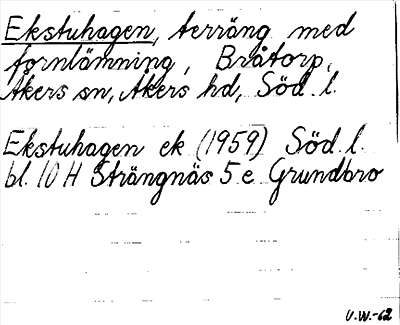 Ekstuhagen, terräng med
fornlämning, Bråtorp,
Åkers sn, Åkers hd, Söd. l.
Ekstuhagen ek (1959) Söd. l.
bl. 10 H Strängnäs 5 e Grundbro
V.W.-62